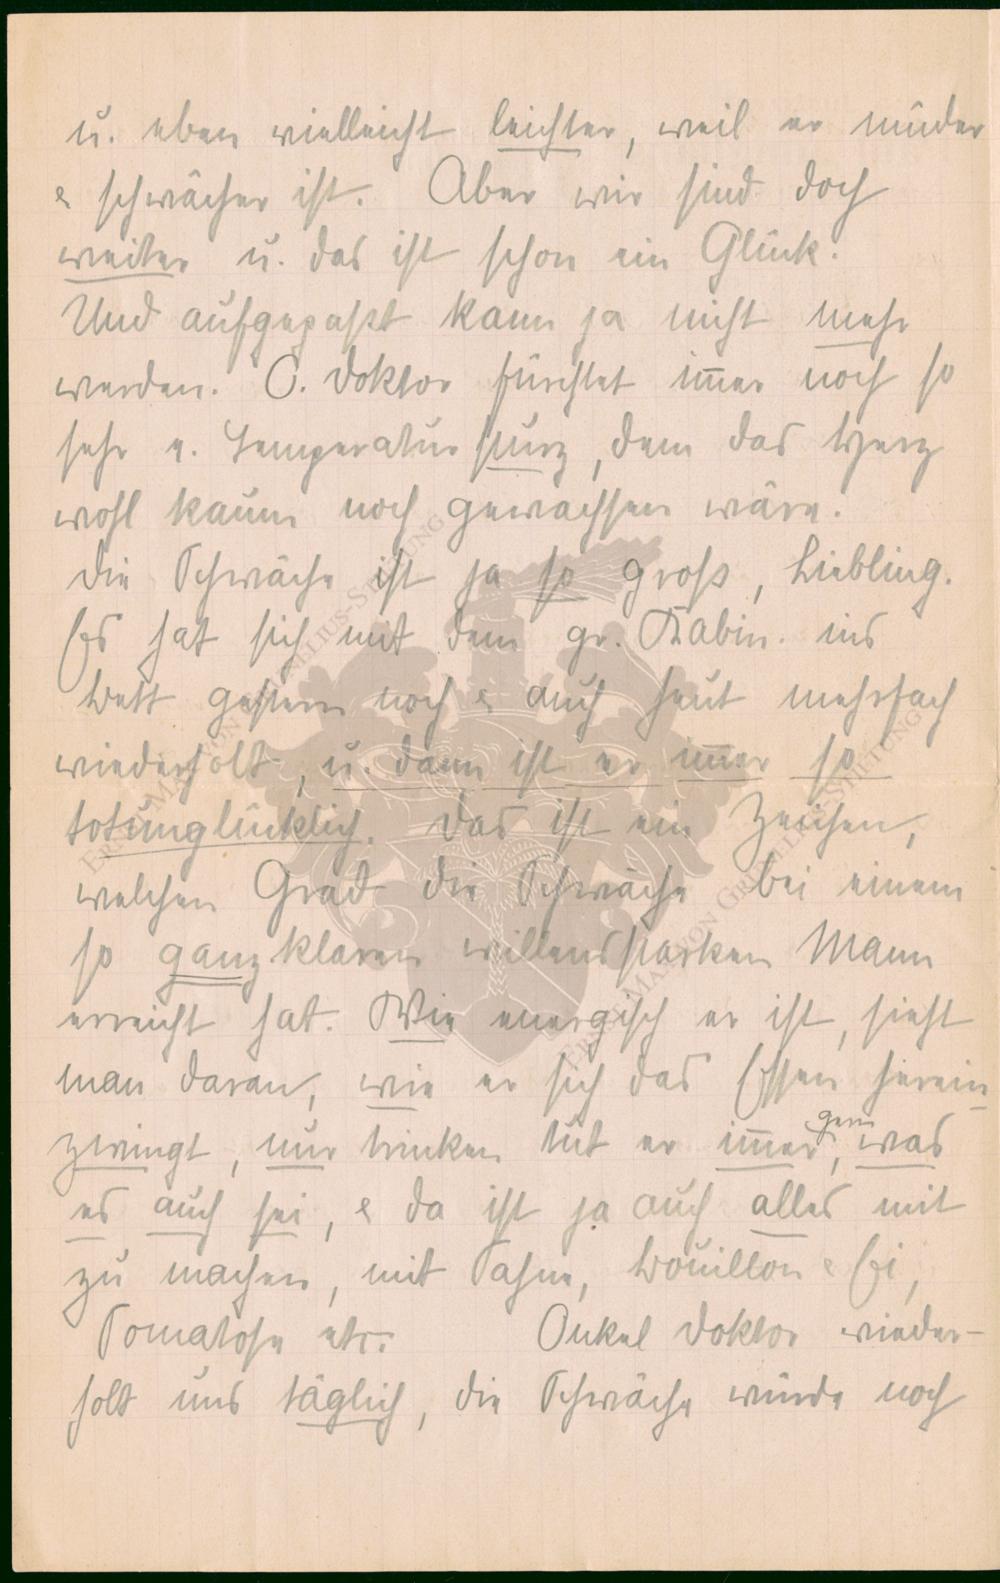 u. eben vielleicht leichter, weil er müder
& schwächer ist. Aber wir sind doch
weiter u. das ist schon ein Glück.
Und aufgepaßt kann ja nicht mehr
werden. O. Doktor fürchtet im̅er noch so
sehr e. Temperatursturz, dem das Herz
wohl kaum noch gewachsen wäre.
Die Schwäche ist ja so groß, Liebling.
Es hat sich mit dem gr. Kabin. ins
Bett gestern noch & auch heut mehrfach
wiederholt, u. dann ist er im̅er so
totunglücklich. Das ist ein Zeichen,
welchen Grad die Schwäche bei einem
so ganz klaren willensstarken Mann
erreicht hat. Wie energisch er ist, sieht
man daran, wie er sich das Essen herein
zwingt, nur trinken tut er im̅er gern, was
es auch sei, & da ist ja auch alles mit
zu machen, mit Sahne, Bouillon & Ei,
Somatose etc. Onkel Doktor wieder-
holt uns täglich, die Schwäche würde noch